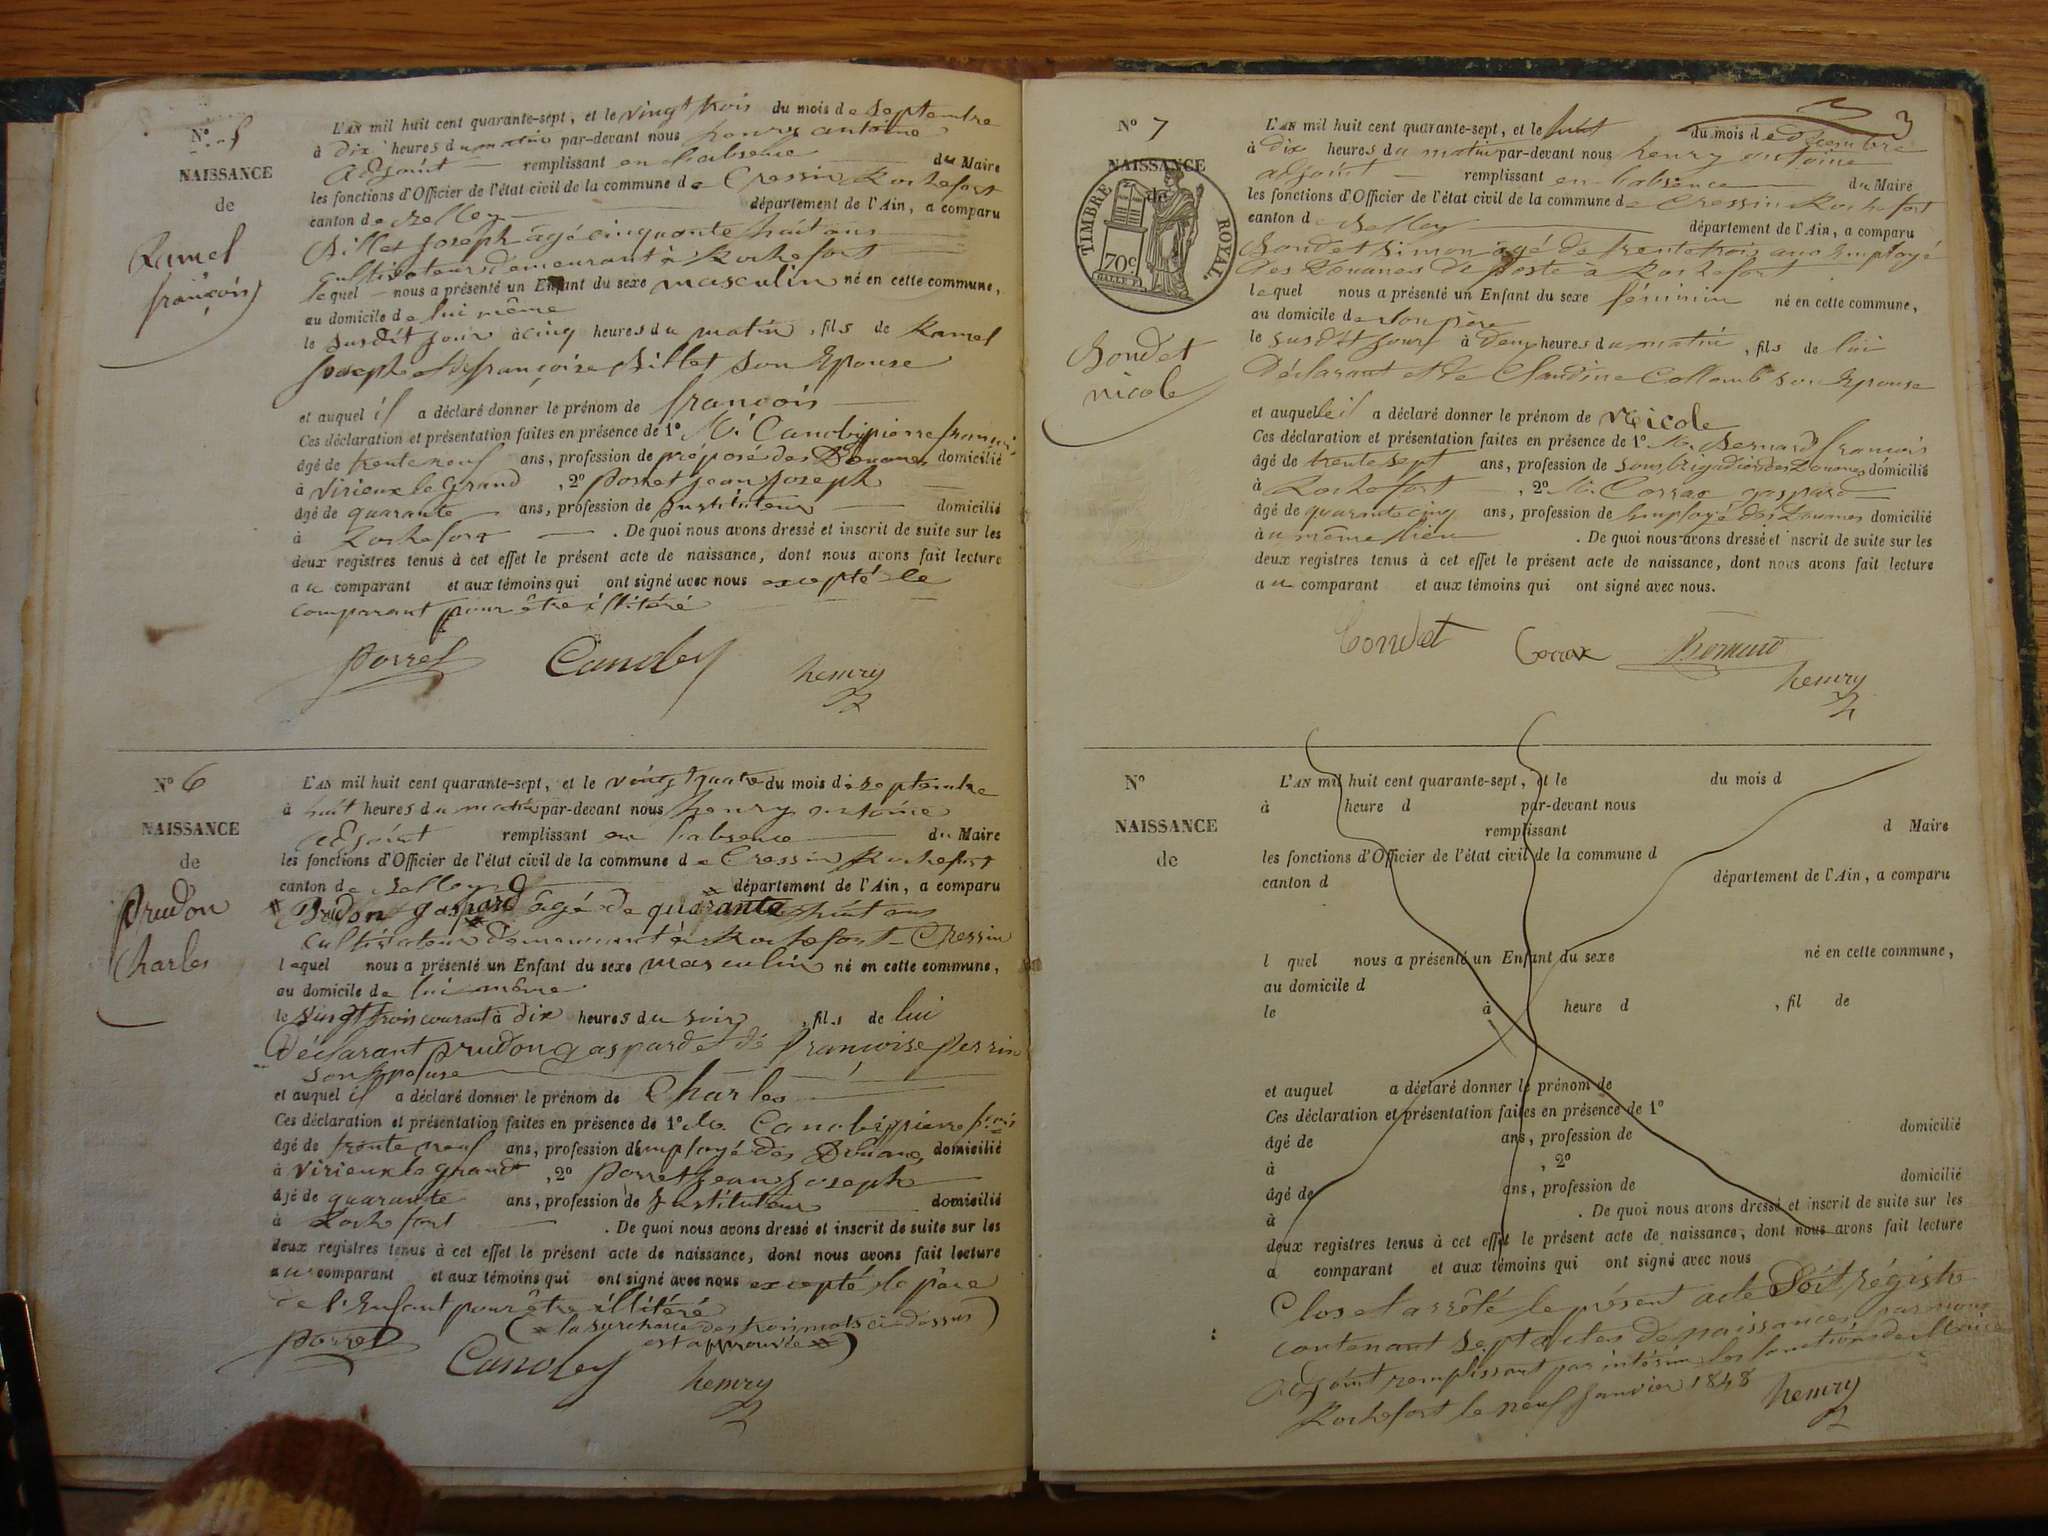 N° 5
NAISSANCE
de
Ramel
françois
L'AN mil huit cent quarante-sept, et le vingt trois du mois de septembre
à dix heures du matin par-devant nous henry antoine
adjoint remplissant en l'absence du Maire
les fonctions d'Officier de l'état civil de la commune de Cressin Rochefort
canton de Belley département de l'Ain, a comparu
Billet Joseph âgé cinquante huit ans
cultivateur demeurant à Rochefort
lequel nous a présenté un Enfant du sexe masculin né en cette commune,
au domicile de lui même
le susdit jour à cinq heures du matin, fils de Ramel
Joseph et de françoise Billet son Epouse
et auquel il a déclaré donner le prénom de françois
Ces déclaration et présentation faites en présence de 1° Mr Canobypierre
âgé de trente neuf ans, profession de préposé des Douanes domicilié
à Virieux le Grand, 2° porret jean joseph
âgé de quarante ans, profession de Instituteur domicilié
à Rochefort. De quoi nous avons dressé et inscrit de suite sur les
deux registres tenus à cet effet le présent acte de naissance, dont nous avons fait lecture
au comparant et aux témoins qui ont signé avec nous excepté le
comparant pour être illitéré
porret Canoby henry
N° 6
NAISSANCE
de
prudon
Charles
L'AN mil huit cent quarante-sept, et le vingt quatre du mois de septembre
à huit heures du matin par-devant nous henry antoine
adjoint remplissant en l'absence du Maire
les fonctions d'Officier de l'état civil de la commune de Cressin Rochefort
canton de Belley département de l'Ain, a comparu
Prudon gaspard âgé de quarante huit ans
cultivateur demeurant à Rochefort-Cressin
lequel nous a présenté un Enfant du sexe masculin né en cette commune,
au domicile de lui même
le vingt trois courant à dix heures du soir, fils de lui
déclarant prudon gaspard et de françoise perrin
son Epouse
et auquel il a déclaré donner le prénom de Charles
Ces déclaration et présentation faites en présence de 1° Mr Canobypierre f.ois
âgé de trente neuf ans, profession d'employé des Douanes domicilié
à Virieux le grand, 2° porret jean joseph
âgé de quarante ans, profession de Instituteur domicilié
à Rochefort. De quoi nous avons dressé et inscrit de suite sur les
deux registres tenus à cet effet le présent acte de naissance, dont nous avons fait lecture
au comparant et aux témoins qui ont signé avec nous excepté le père
de l'Enfant pour être illitéré
(la surcharge des trois mots ci dessus
est approuvée)
porret Canobey henry
3
N° 7
NAISSANCE
de
TIMBRE ROYAL
70c
Bondet
nicole
L'AN mil huit cent quarante-sept, et le huit du mois de décembre
à dix heures du matin par-devant nous henry antoine
adjoint remplissant en l'absence du Maire
les fonctions d'Officier de l'état civil de la commune de Cressin Rochefort
canton de Belley département de l'Ain, a comparu
Bondet Simon âgé de trente trois ans Employé
des Douanes de poste à Rochefort
lequel nous a présenté un Enfant du sexe féminin né en cette commune,
au domicile de son père
le susdit jour à deux heures du matin, fils de lui
Déclarant et de Claudine Collomb son Epouse
et auquelle il a déclaré donner le prénom de Nicole
Ces déclaration et présentation faites en présence de 1° Mr Bernard françois
âgé de trente sept ans, profession de sous brigadier des Douanes domicilié
à Rochefort, 2° Mr Corrax gaspard
âgé de quarante cinq ans, profession de Employé des Douanes domicilié
à u même lieu. De quoi nous avons dressé et inscrit de suite sur les
deux registres tenus à cet effet le présent acte de naissance, dont nous avons fait lecture
au comparant et aux témoins qui ont signé avec nous.
Bondet Corrax Bernard
henry
N°
NAISSANCE
de
L'AN mil huit cent quarante-sept, et le du mois d
à heure d par-devant nous
remplissant d Maire
les fonctions d'Officier de l'état civil de la commune d
canton d département de l'Ain, a comparu
l quel nous a présenté un Enfant du sexe né en cette commune,
au domicile d
le à heure d , fil de
et auquel a déclaré donner le prénom de
Ces déclaration et présentation faites en présence de 1°
âgé de ans, profession de domicilié
à , 2°
âgé de ans, profession de domicilié
à . De quoi nous avons dressé et inscrit de suite sur les
deux registres tenus à cet effet le présent acte de naissance, dont nous avons fait lecture
a comparant et aux témoins qui ont signé avec nous
Clos et arrêté le présent acte Dit régistre
contenant sept actes de naissances par nous
adjoint remplissant par intérim les fonctions de Maire
Rochefort le neuf Janvier 1848 henry